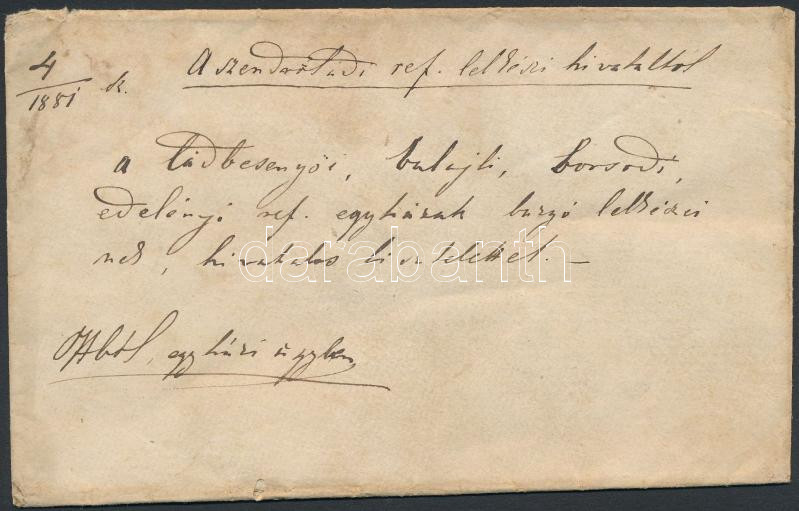 4/1881 sz.
A szendrőládi ref. lelkészi hivataltól
a ládbesenyői, balajti, borsodi,
edelényi ref. egyházak buzgó lelkészei
nek, hivatalos tisztelettel. —
Hből, egyházi ügyben
darabanth